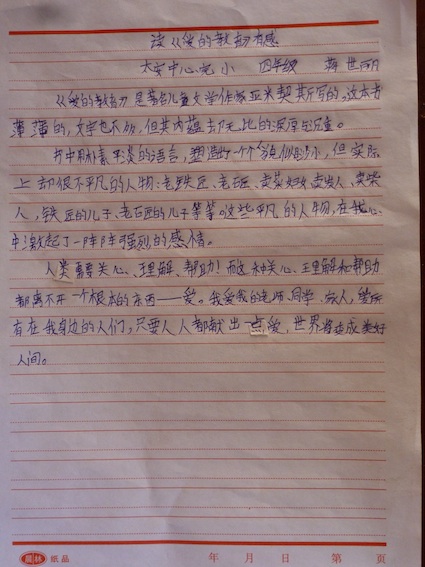 读《爱的教育》有感
太安中心完小 四年级 世丽
《爱的教育》是著名儿童文学作家亚米契斯所写的。这本书
薄薄的,文字也不多,但其内蕴却无比的深厚与沉重。
书中用朴素平淡的语言,塑造出一个个貌似渺小,但实际
上却很不平凡的人物:老铁匠、老石匠、卖菜妇女、卖炭人、卖柴
人,铁匠的儿子、老石匠的儿子等等。这些平凡的人物,在我心
中激起了一阵阵强烈的感情。
人类需要关心、理解、帮助!而这种关心、理解和帮助
都离不开一个根本的东西——爱。我爱我的老师、同学、家人,爱所
有在我身边的人们,只要人人都献出一点爱,世界将变成美好
人间。
纸品 年 月 日 第 页